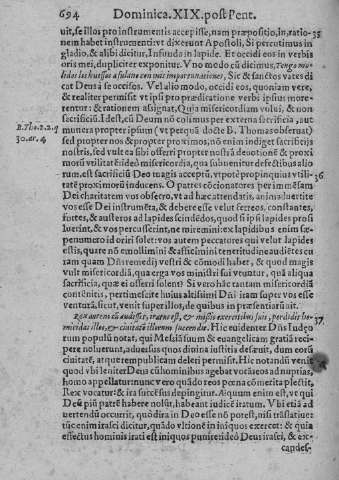 694 Dominica. XIX. post Pent.
uit, se illos pro instrumentis accepisse, nam præpositio, in, ratio- 35
nem habet instrumenti: vt dixerunt Apostoli, Si percutimus in
gladio, & alibi dicitur, Infunda in lapide. Et occidi eos in verbis
oris mei, dupliciter exponitur. Vno modo cũ dicimus, Tengo mo-
lidos los huessos a fulano con mis importunaciones, Sic & sanctos vates di
cat Deus à se occisos. Vel alio modo, occidi eos, quoniam vere,
& realiter permisit vt ipsi pro prædicatione verbi ipsius more-
rentur: & rationem assignat, Quia misericordiam volui, & non
sacrificiũ. Id est, cũ Deum nõ colimus per externa sacrificia, aut
B. Tho. 2. 2. q munera propter ipsum (vt perquã docte B. Thomas obseruat)
30. ar. 4 sed propter nos & propter proximos, nõ enim indiget sacrificijs
nostris, sed vult ea sibi offerri propter nostrã deuotionẽ & proxi
morũ vtilitatẽ: ideò misericordia, qua subuenitur defectibus alio
rum, est sacrificiũ Deo magis acceptũ, vtpotè propinquius vtili- 36
tatẽ proximorũ inducens. O patres cõcionatores per immẽsam
Dei charitatem vos obsecro, vt ad hæc attendatis, animaduertite
vos esse Dei instrumẽta, & debere esse velut ferreos, constantes,
fortes, & austeros ad lapides scindẽdos, quod si ipsi lapides prosi
luerint, & vos percusserint, ne miremini: ex lapidibus enim sæ-
penumero id oriri solet: vos autem peccatores qui velut lapides
estis, quare nõ emollimini & afficimini terentitudine audiẽtes co
ram quam Dñs remedij vestri & cõmodi habet, & quod magis
vult misericordiã, qua erga vos ministri sui vtuntur, quã aliqua
sacrificia, quæ ei offerri solent? Si verò hãc tantam misericordiã
contẽnitis, pertimescite huius altissimi Dñi iram super vos esse
venturã, sicut, venit super illos, de quibus in præsentiarũ ait.
Rex autem cũ audisset, iratus est, & missis exercitibus suis, perdidit ho- 37
micidas illos, & ciuitatẽ illorum succendit. Hic euidenter Dñs Iudæo
rum populũ notat, qui Messiã suum & euangelicam gratiã reci-
pere noluerunt, aduersus quos diuina iustitia desæuit, dum eorũ
ciuitatẽ, atque rempublicam deleri permisit. Hic notandũ venit
quod vbi leniter Deus cũ hominibus agebat vocãs eos ad nuptias,
homo appellatur: nunc vero quãdo reos pœna cõmerita plectit,
Rex vocatur: & ira succẽsus depingitur. Æquum enim est, vt qui
Deũ piũ patrẽ habere nolũt, habeant iudicẽ iratum. Vbi etiã ad
uertendũ occurrit, quòd ira in Deo esse nõ potest, nisi trãslatiue:
tũc enim irasci dicitur, quãdo vltionẽ in iniquos exercet: & quia
effectus hominis irati est iniquos punire: ideò Deus irasci, & ex-
candes-